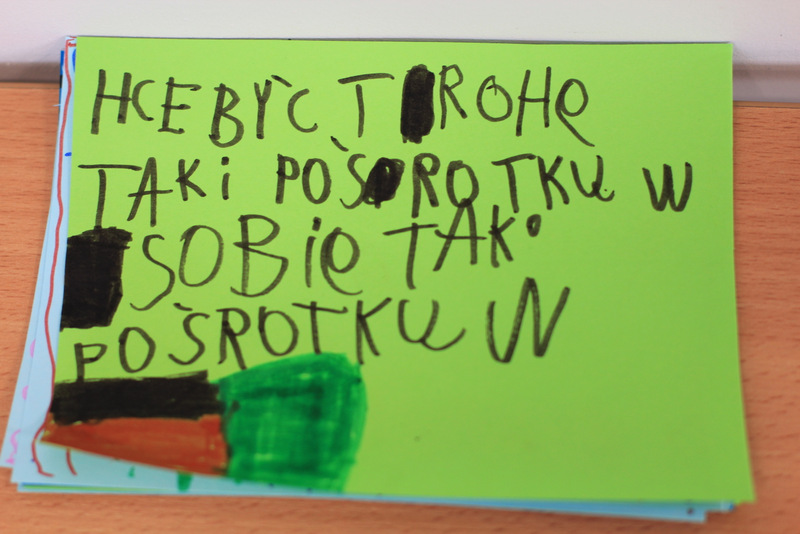 HCE BYĆ T ROHĘ
TAKi POŚ ROTKU W
SOBiĘ TAK
POŚROTKU W